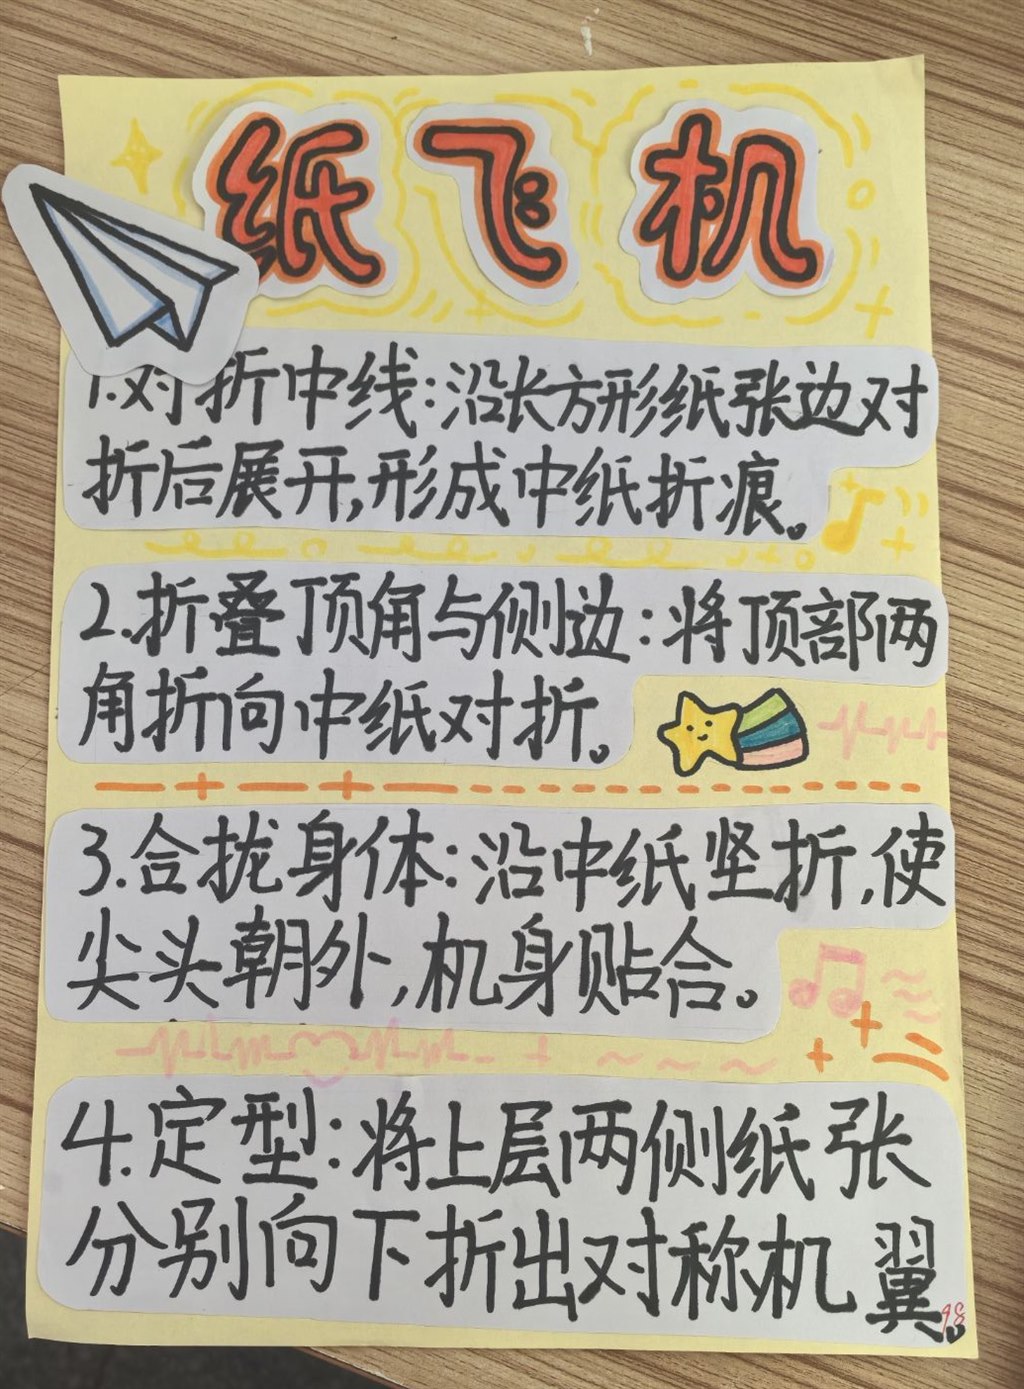 纸飞机
1.对折中线:沿长方形纸张边对
折后展开,形成中纸折痕。
2.折叠顶角与侧边:将顶部两
角折向中纸对折。
3.合拢身体:沿中纸坚折,使
尖头朝外,机身贴合。
4.定型:将上层两侧纸张
分别向下折出对称机翼。
98